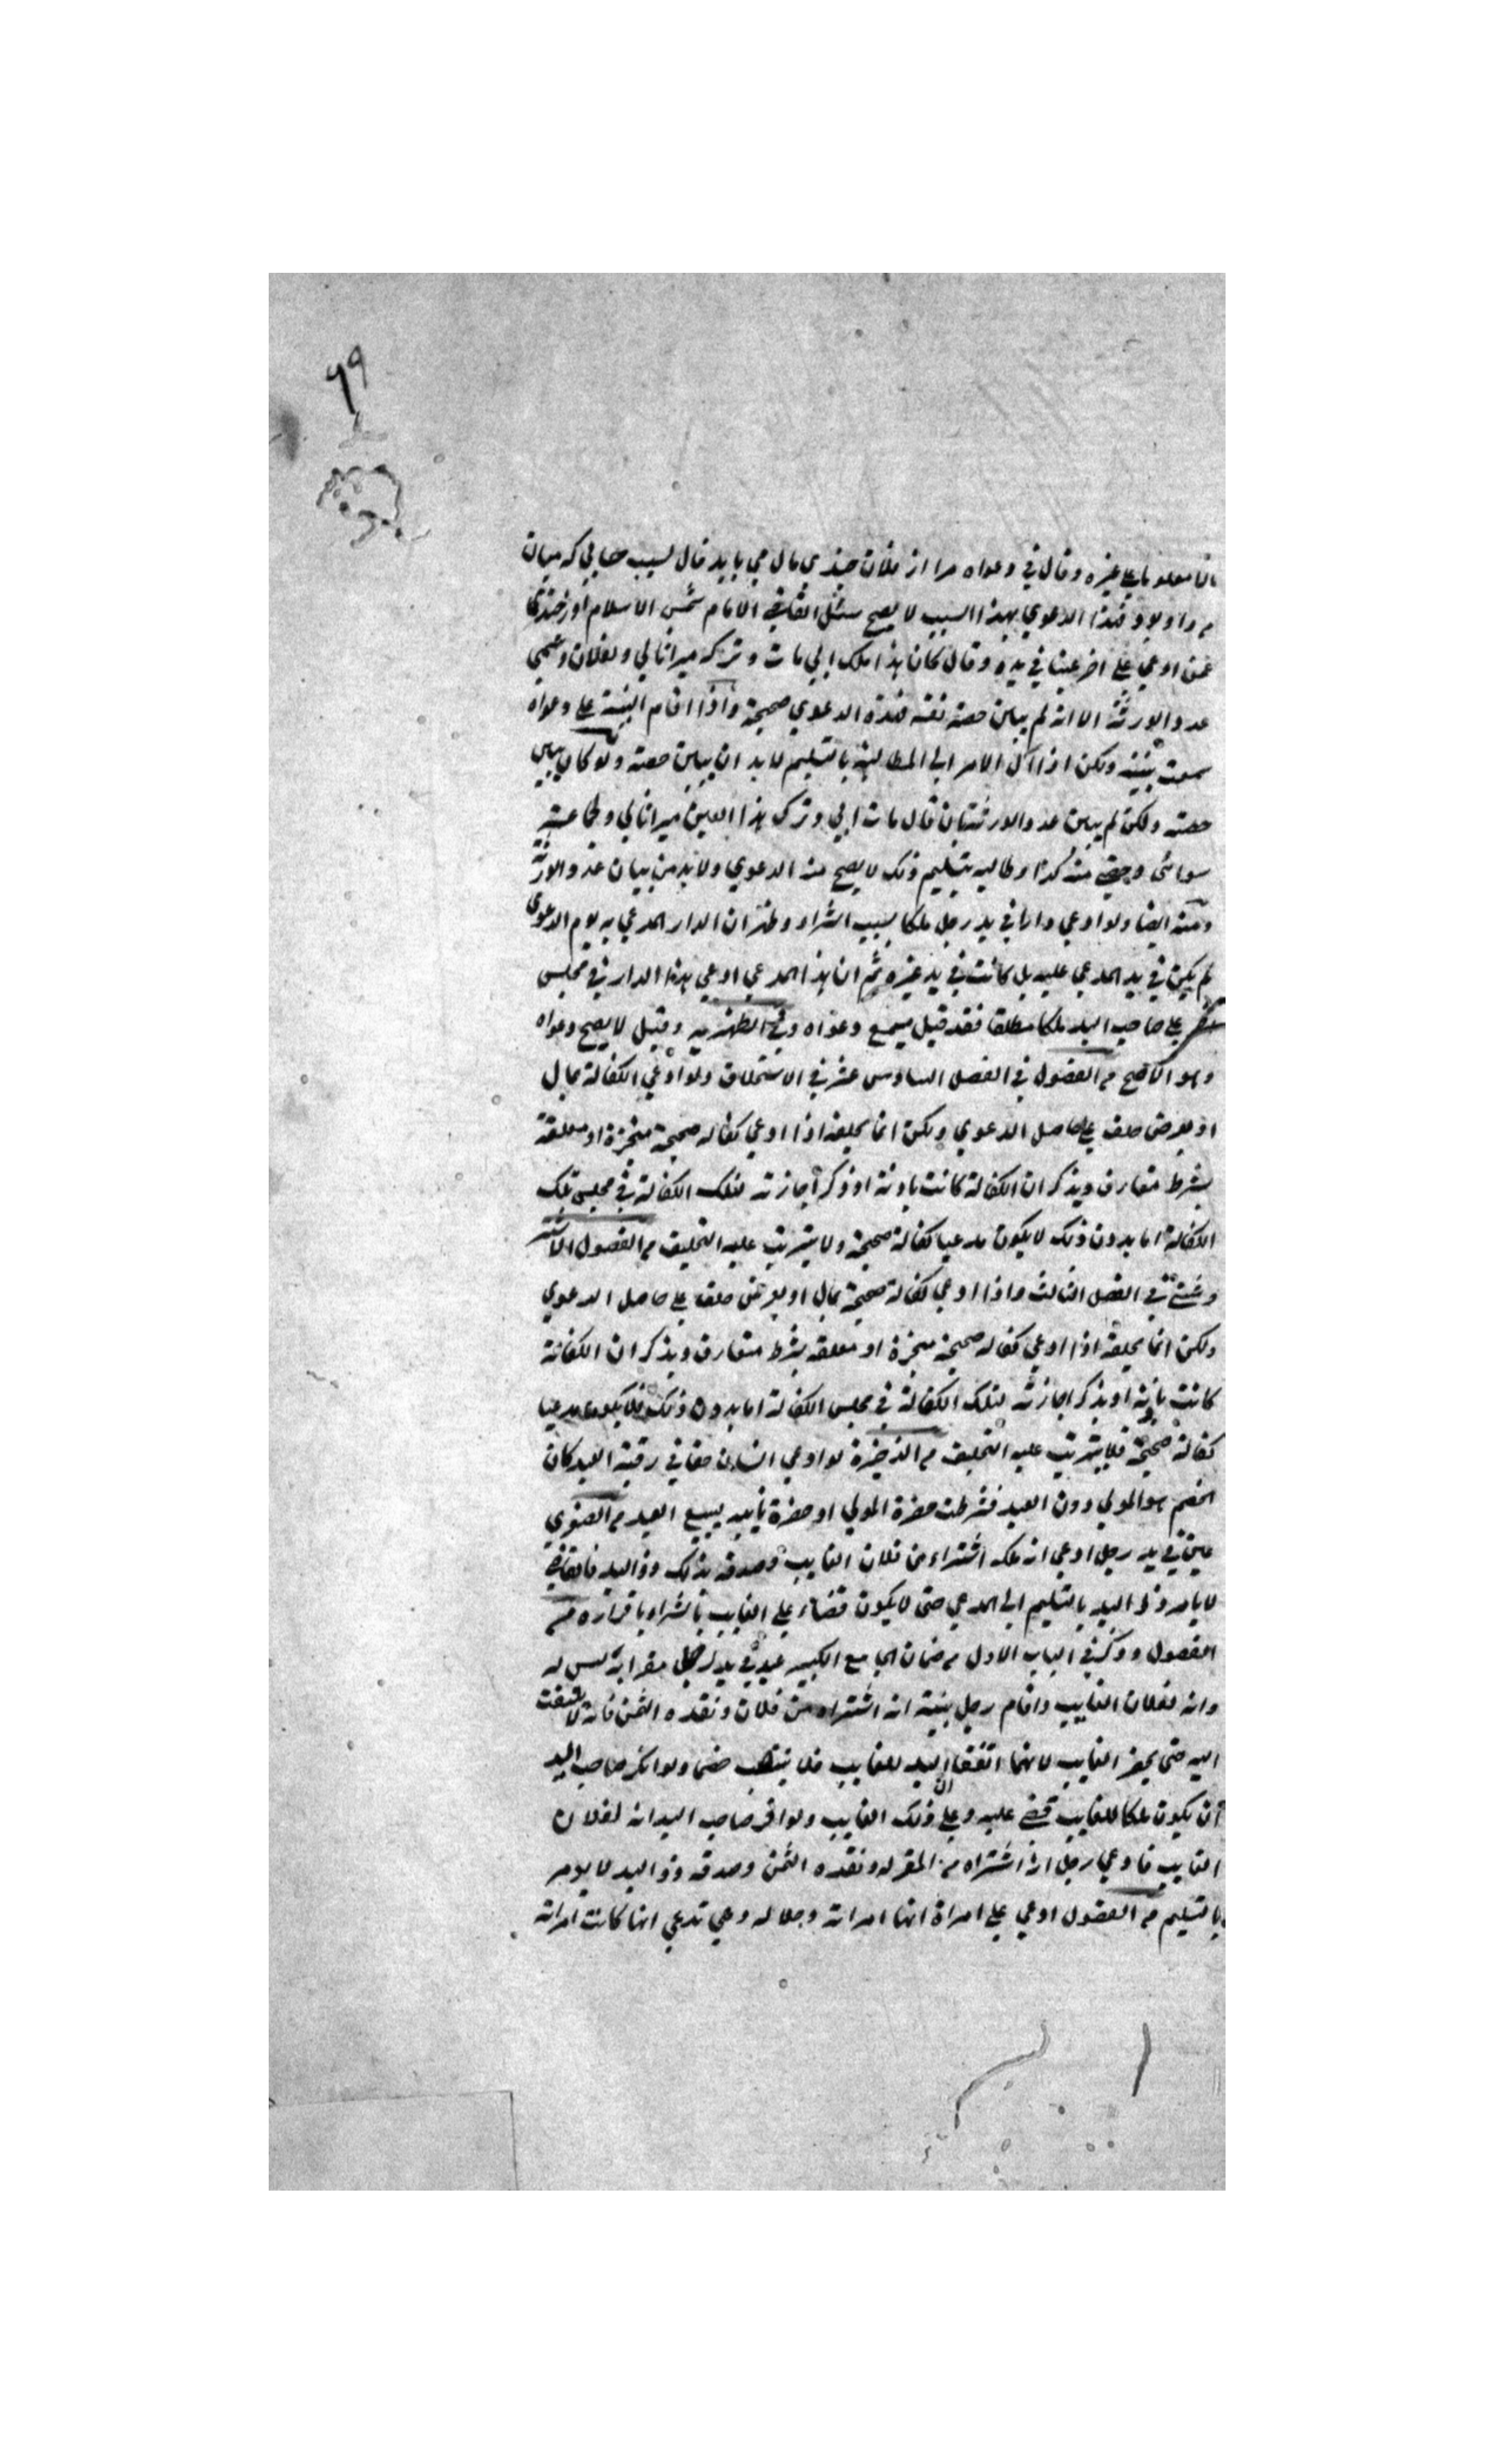 ٩٩
مالا معلوما على غيره وقال في دعواه مرا از فلان چندين مال مي بايد قال بسبب حسابي كه ميان
من واو بود فهذا الدعوي بهذا السبب لا يصح سئل القاضي الامام شمس الاسلام اوزجندي
عمن ادعي علي اخر عينا في يده وقال كان هذا ملك ابي مات وتركه ميراثا لي ولفلان وسمي
عدد الورثة الا انه لم يبين حصة نفسه فهذه الدعوي صحيحة واذا اقام البينة علي دعواه
سمعت بينته ولكن اذا آل الامر الي المطالبة بالتسليم لا بد ان يبين حصته ولو كان يبين
حصته ولكن لم يبين عدد الورثة بان قال مات ابي وترك هذا العين ميراثا لي ولجماعة
سوائي وحصتي منه كذا وطالبه بتسليم ذلك لا يصح منه الدعوي ولا بد من بيان عدد الورثة
ومنه ايضا ولو ادعي دارا في يد رجل ملكا بسبب الشراء وظهر ان الدار المدعي به يوم الدعوي
لم يكن في يد المدعي عليه بل كانت في يد غيره ثم ان هذا المدعي ادعي هذا الدار في مجلس
علي صاحب اليد ملكا مطلقا فقد قيل يسمع دعواه وفي الظهيريه وقيل لا يصح دعواه
وهو الاصح من الفصول في الفصل السادس عشر في الاستحلاف ولو ادعي الكفالة بمال
او بعرض حلف علي حاصل الدعوي ولكن انما يحلفه اذا ادعي كفاله صحيحة منجزة او معلقة
بشرط متعارف ويذكر ان الكفالة كانت باذنه او ذكر اجازته لتلك الكفالة في مجلس تلك
الكفالة اما بدون ذلك لا يكون مدعيا كفالة صحيحة ولا يترتب عليه التحليف من الفصول
في الفصل الثالث واذا ادعي كفالة صحيحة بمال او بعرض حلف علي حاصل الدعوي
ولكن انما يحلفه اذا ادعي كفاله صحيحة منجزة او معلقه بشرط متعارف ويذكر ان الكفالة
كانت باذنه او يذكر اجازته لتلك الكفالة في مجلس الكفالة اما بدون ذلك فلا يكون مدعيا
كفالة صحيحة فلا يترتب عليه التحليف من الذخيرة لو ادعي انسان حقا في رقبة العبد كان
الخصم هو المولي دون العبد فشرطت حضرة المولي او حضرة نايبه ببيع العبد من الصغري
عين في يد رجل ادعي انه ملكه اشتراه من فلان الغايب وصدقه بذلك ذو اليد فالقاضي
لا يامر ذا اليد بالتسليم الي المدعي حتى لا يكون قضاء علي الغايب بالشراء باقراره من
الفصول وذكر في الباب الاول من ضمان الجامع الكبير عبد في يد رجل مقر انه ليس له
وانه لفلان الغايب واقام رجل بينة انه اشتراه من فلان ونقده الثمن فانه لا يلتفت
اليه حتى يحضر الغايب لانهما اتفقا ان اليد للغايب فلا ينتصب خصما ولو انكر صاحب اليد
ان يكون ملكا للغايب قضي عليه وعلي ذلك الغايب ولو اقر صاحب اليد انه لفلان
الغايب فادعي رجل انه اشتراه من المقر له ونقده الثمن وصدقه ذو اليد لا يومر
بالتسليم من الفصول ادعي علي امراة انها امراته وحلاله وهي تدعي انها كانت امراته